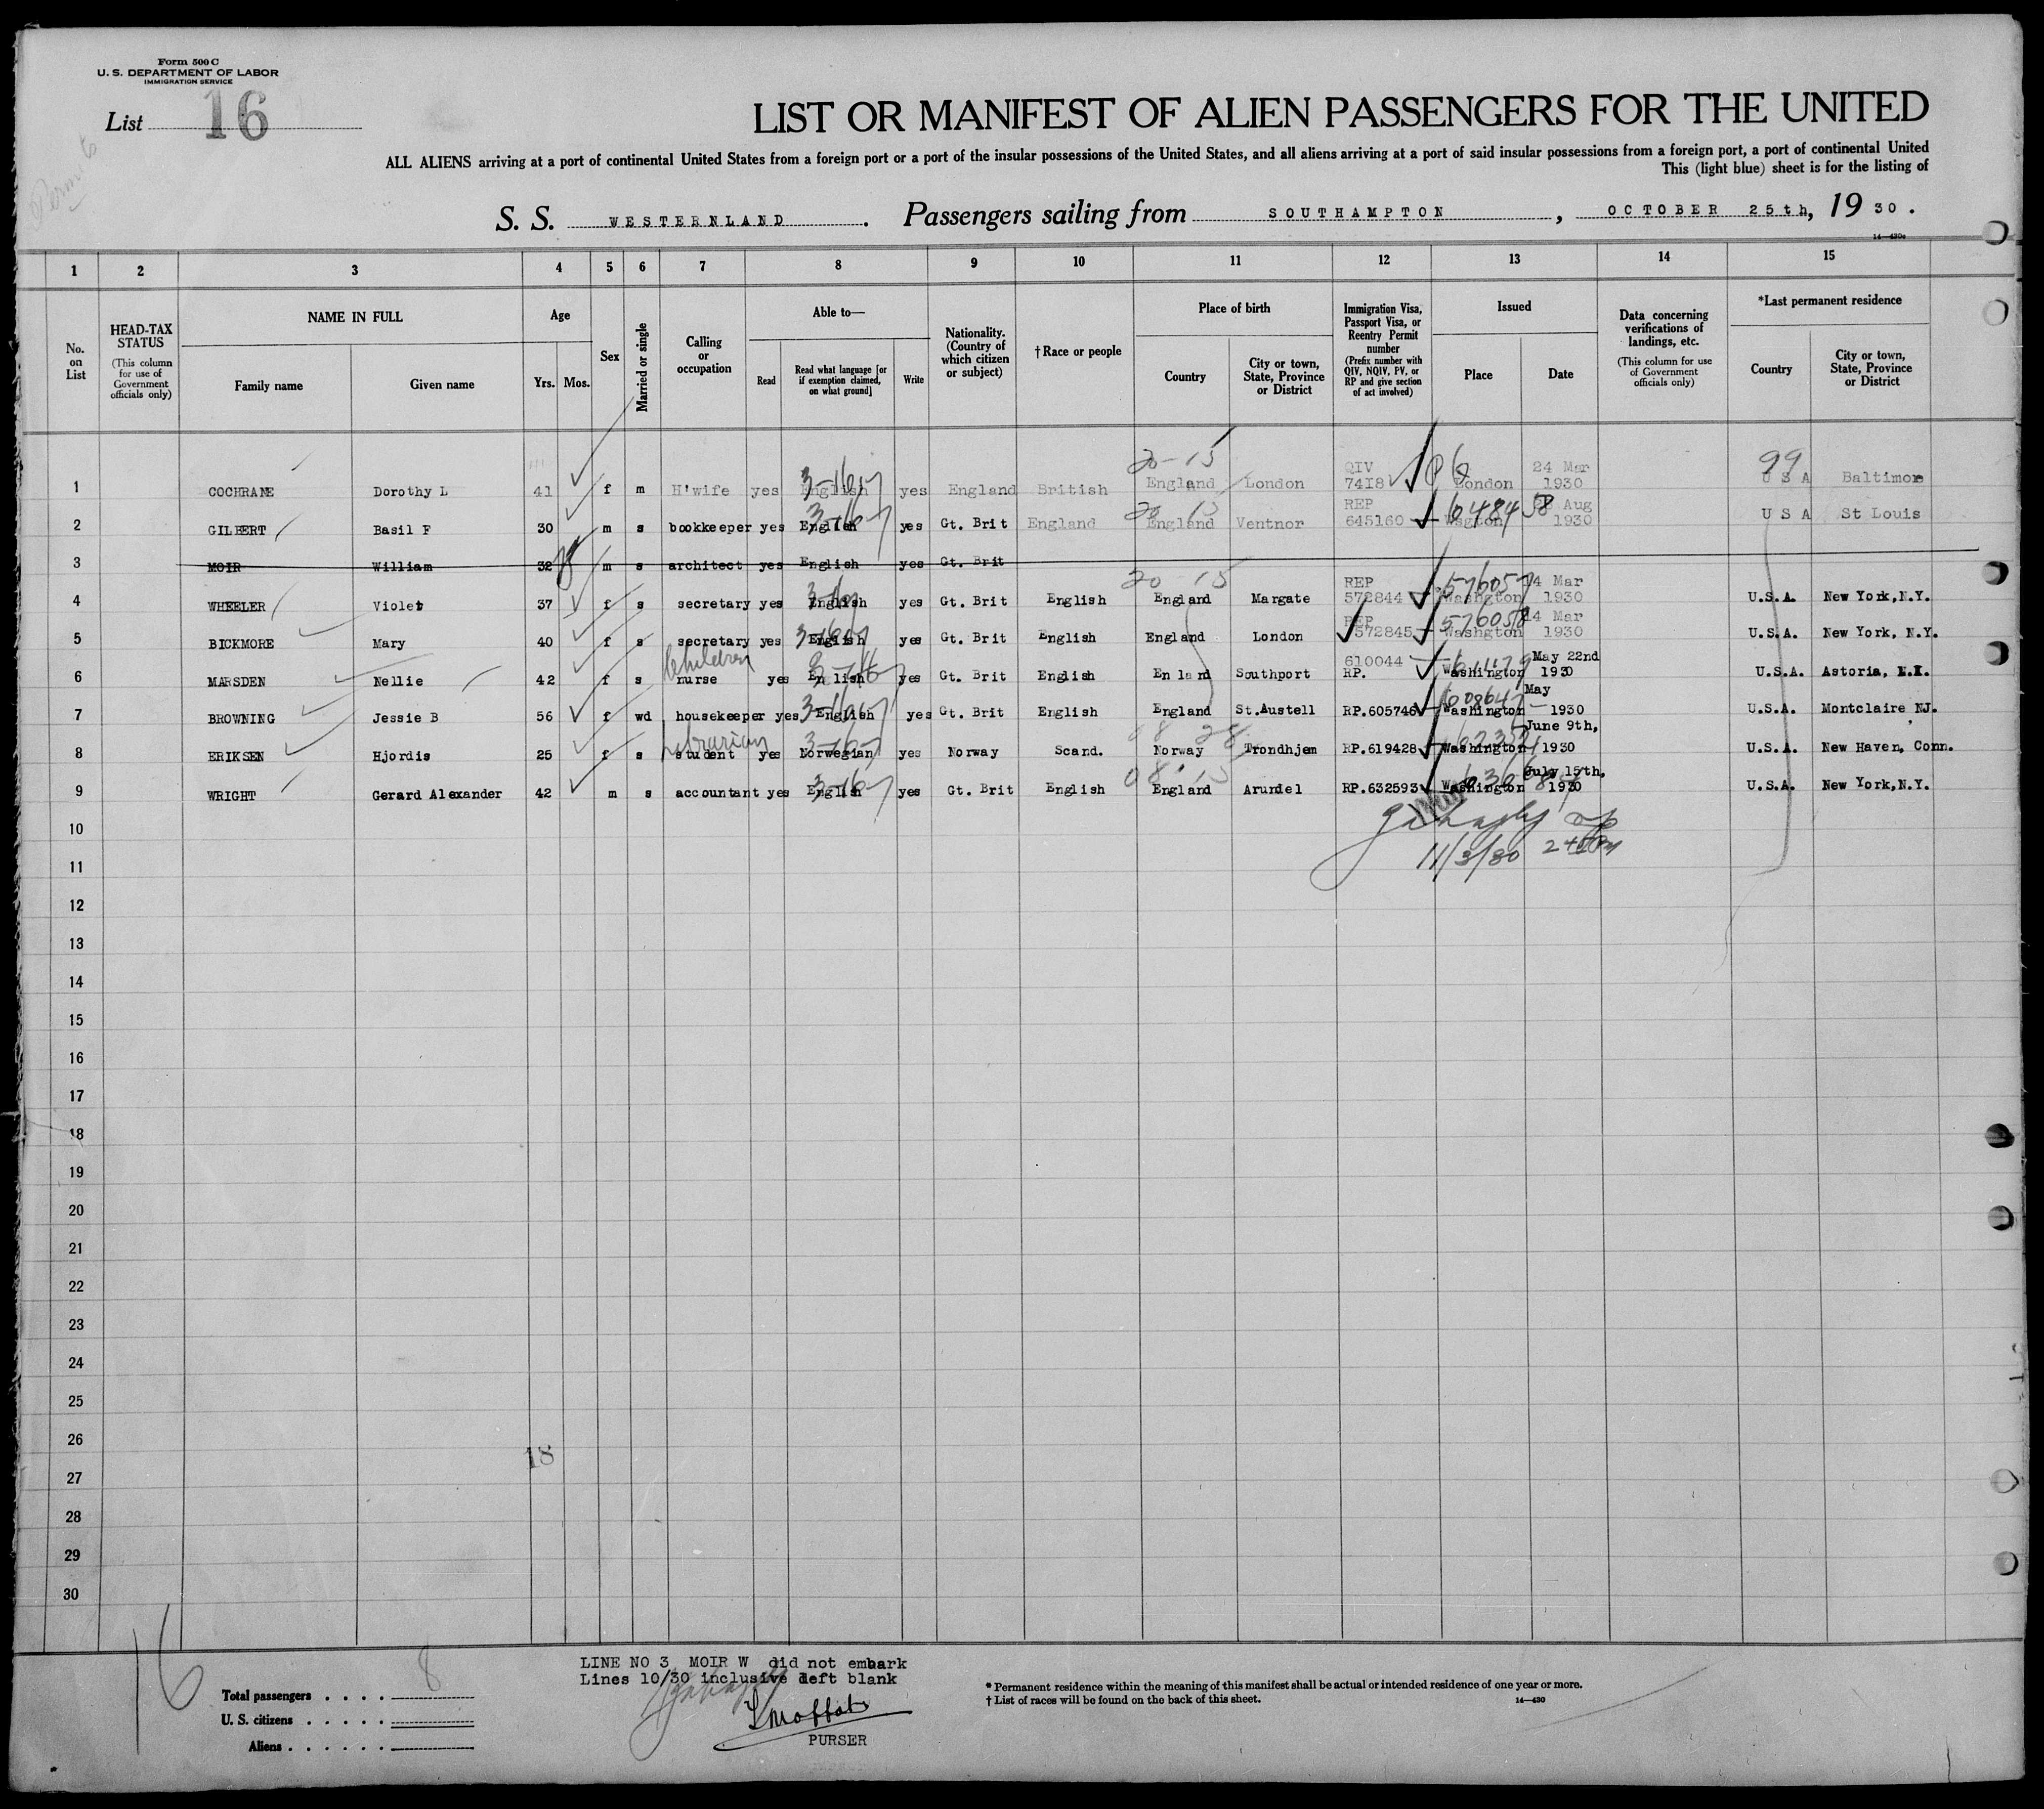 Form 500 C
U. S. DEPARTMENT OF LABOR
IMMIGRATION SERVICE
List 16
LIST OR MANIFEST OF ALIEN PASSENGERS FOR THE UNITED
ALL ALIENS arriving at a port of continental United States from a foreign port or a port of the insular possessions of the United States, and all aliens arriving at a port of said insular possessions from a foreign port, a port of continental United
This (light blue) sheet is for the listing of
S. S. WESTERNLAND. Passengers sailing from SOUTHAMPTON, OCTOBER 25th, 1930.
14—430a
1 2 3 4 5 6 7 8 9 10 11 12 13 14 15
No. on List
HEAD-TAX STATUS (This column for use of Government officials only)
NAME IN FULL
Family name
Given name
Age
Yrs. Mos.
Sex
Married or single
Calling or occupation
Able to—
Read
Read what language [or if exemption claimed, on what ground]
Write
Nationality. (Country of which citizen or subject)
† Race or people
Place of birth
Country
City or town, State, Province or District
Immigration Visa, Passport Visa, or Reentry Permit number (Prefix number with QIV, NQIV, PV, or RP and give section of act involved)
Issued
Place
Date
Data concerning verifications of landings, etc. (This column for use of Government officials only)
*Last permanent residence
Country
City or town, State, Province or District
1 COCHRANE Dorothy L 41 f m H'wife yes English yes England British England London QIV 7418 London 24 Mar 1930 99 U S A Baltimore
2 GILBERT Basil F 30 m s bookkeeper yes English yes Gt. Brit England England Ventnor REP 645160 Wsgton Aug 1930 U S A St Louis
3 MOIR William 32 m s architect yes English yes Gt. Brit
4 WHEELER Violet 37 f s secretary yes English yes Gt. Brit English England Margate REP 572844 Washgton 14 Mar 1930 U.S.A. New York,N.Y.
5 BICKMORE Mary 40 f s secretary yes English yes Gt. Brit English England London REP 572845 Washgton 14 Mar 1930 U.S.A. New York, N.Y.
6 MARSDEN Nellie 42 f s Children nurse yes En lish yes Gt. Brit English En land Southport 610044 RP. Washington May 22nd 1930 U.S.A. Astoria,
7 BROWNING Jessie B 56 f wd housekeeper yes English yes Gt. Brit English England St.Austell RP.605746 Washington May 1930 U.S.A. Montclaire NJ.
8 ERIKSEN Hjordis 25 f s student librarian yes Norwegian yes Norway Scand. Norway Trondhjem RP.619428 Washington June 9th, 1930 U.S.A. New Haven, Conn.
9 WRIGHT Gerard Alexander 42 m s accountant yes English yes Gt. Brit English England Arundel RP.632593 Washington July 15th, 1930 U.S.A. New York,N.Y.
10
11 11/3/30
12
13
14
15
16
17
18
19
20
21
22
23
24
25
26
18
27
28
29
30
16
LINE NO 3 MOIR W did not embark
Lines 10/30 inclusive left blank
Total passengers . . . . 8
U. S. citizens . . . . .
Aliens . . . . . .
Moffat
PURSER
* Permanent residence within the meaning of this manifest shall be actual or intended residence of one year or more.
† List of races will be found on the back of this sheet.
14—430